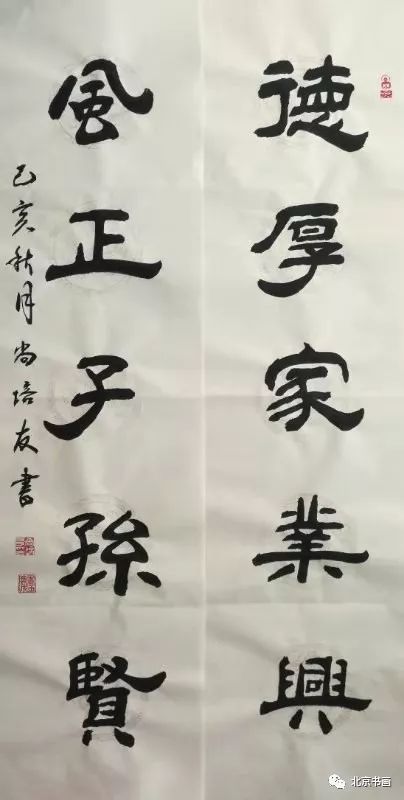 德厚家業興
風正子孫賢
己亥秋月尚培友書
北京书画